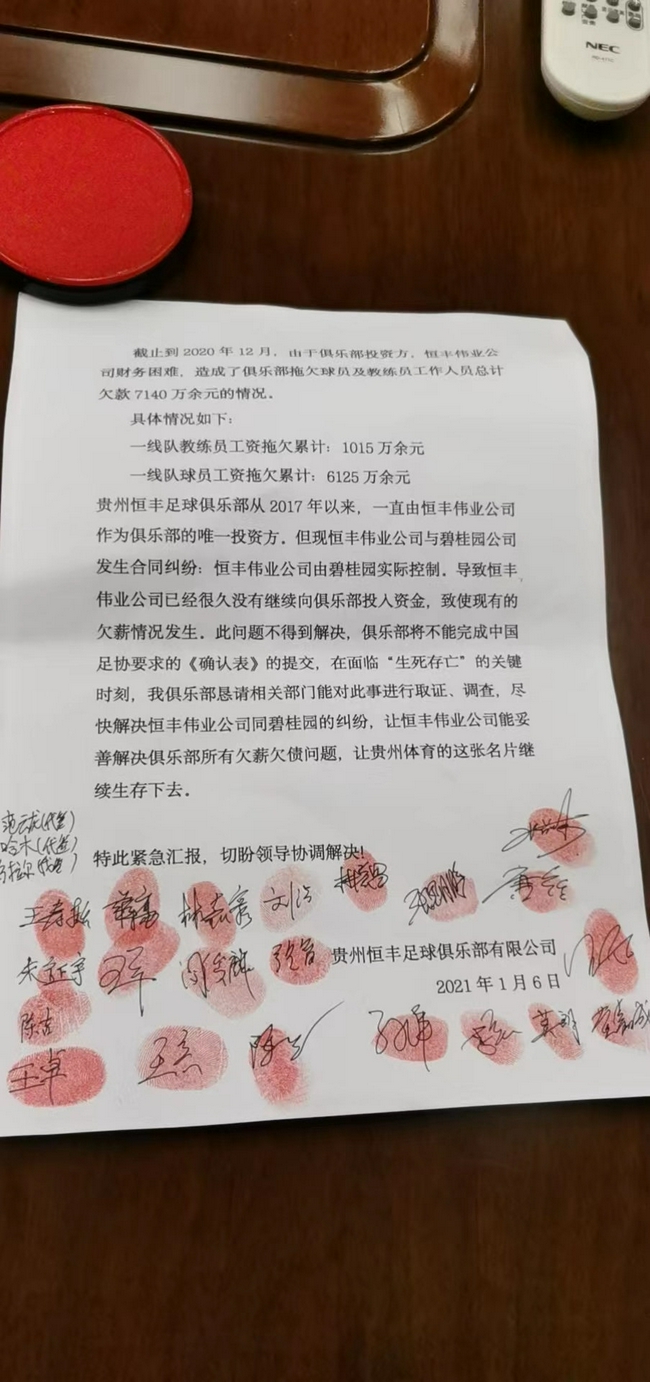 NEC
截止到 2020 年 12 月，由于俱乐部投资方，恒丰伟业公
司财务困难，造成了俱乐部拖欠球员及教练员工作人员总计
欠款 7140 万余元的情况。
具体情况如下：
一线队教练员工资拖欠累计：1015 万余元
一线队球员工资拖欠累计：6125 万余元
贵州恒丰足球俱乐部从 2017 年以来，一直由恒丰伟业公司
作为俱乐部的唯一投资方。但现恒丰伟业公司与碧桂园公司
发生合同纠纷：恒丰伟业公司由碧桂园实际控制。导致恒丰
伟业公司已经很久没有继续向俱乐部投入资金，致使现有的
欠薪情况发生。此问题不得到解决，俱乐部将不能完成中国
足协要求的《确认表》的提交，在面临“生死存亡”的关键
时刻，我俱乐部恳请相关部门能对此事进行取证、调查，尽
快解决恒丰伟业公司同碧桂园的纠纷，让恒丰伟业公司能妥
善解决俱乐部所有欠薪欠债问题，让贵州体育的这张名片继
续生存下去。
特此紧急汇报，切盼领导协调解决！
刘浩
朱正宇
贵州恒丰足球俱乐部有限公司
2021 年 1 月 6 日
王卓